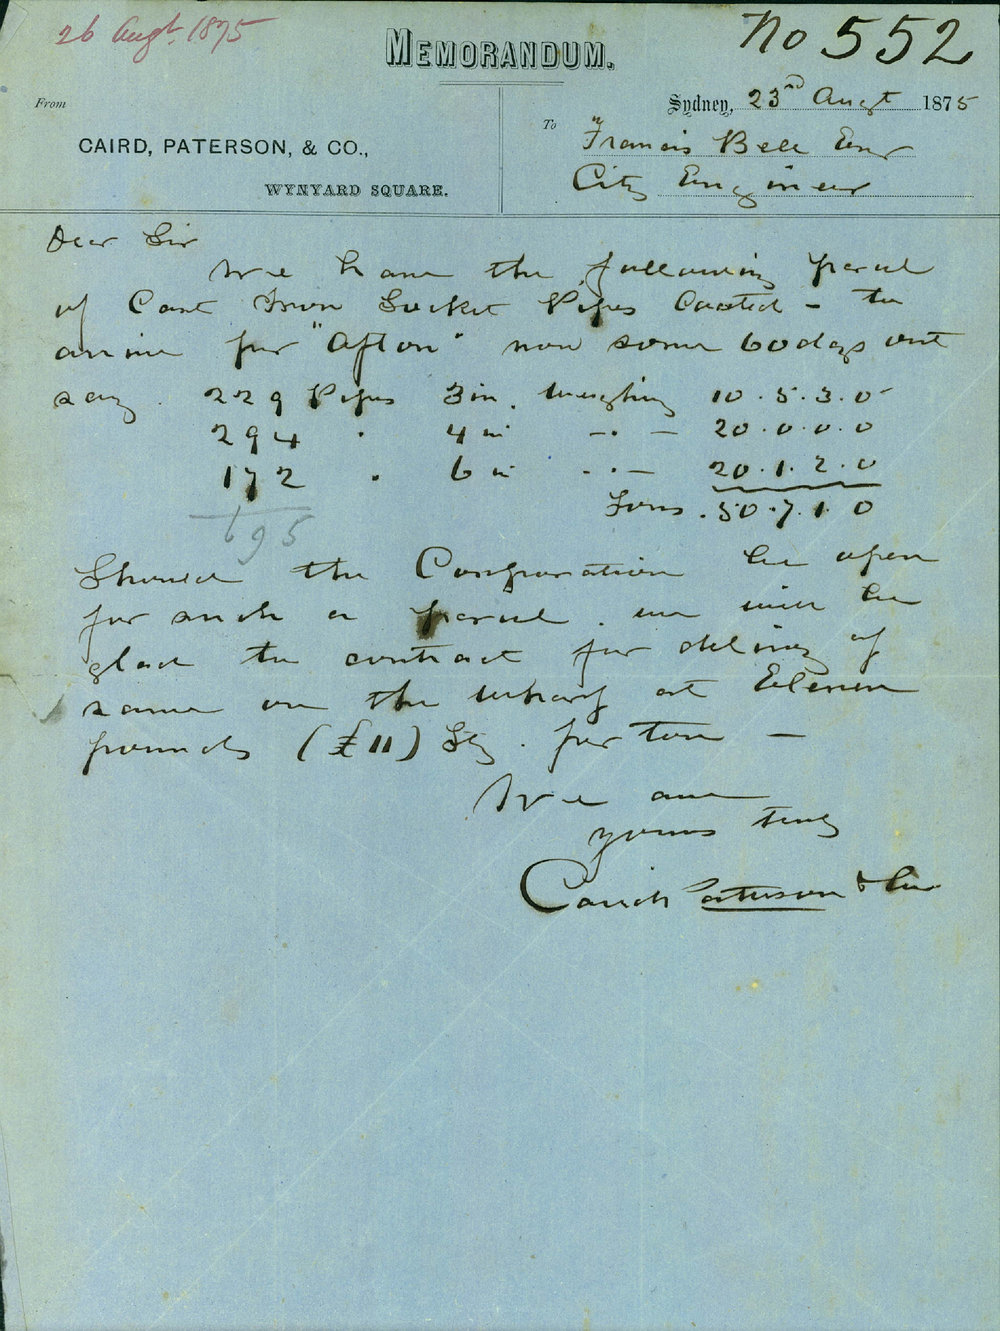 26 Augt. 1875
No 552
MEMORANDUM.
From
CAIRD, PATERSON, & CO.,
WYNYARD SQUARE.
Sydney, 23rd Augt 1875
To
Francis Bell Esqr
City Engineer
Dear Sir
We have the following parcel
of Cast Iron Socket Pipes Coated – to
arrive per "Afton" now some 60 days out
say. 229 Pipes 3 in. weighing 10.5.3.0
294 " 4 in – " – 20.0.0.0
172 " 6 in – " – 20.1.2.0
695
Tons. 50.7.1.0
Should the Corporation be open
for such a parcel. we will be
glad to contract for delivery of
same on the wharf at Eleven
pounds (£11) Stg. per ton –
We are
yours truly
Caird Paterson & Co